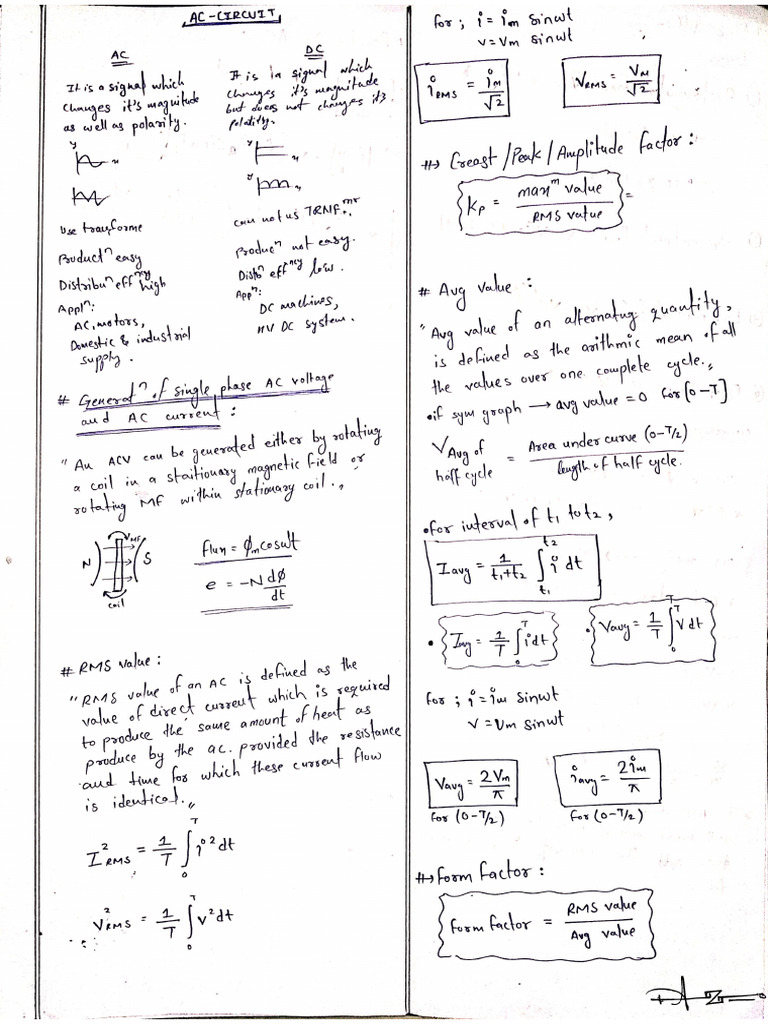 AC-CIRCUIT
AC
It is a signal which
changes it's magnitude
as well as polarity.
y
x
Use transforme
Productⁿ easy
Distribuⁿ effⁿᶜʸ high
Applⁿ:
AC, motors,
Domestic & industrial
supply.
DC
It is in signal which
changes it's magnitude
but does not changes it's
polatity.
y
x
y
x
can not us TRNFᵐʳ.
Producⁿ not easy.
Distoⁿ effⁿᶜʸ low.
Appⁿ:
DC machines,
HV DC system.
# Generatⁿ of single phase AC voltage
and AC current :
"An ACV can be generated either by rotating
a coil in a staitionary magnetic field or
rotating MF within stationary coil.,,
N MF S
coil
Flux = ϕm cosωt
e = -N dϕ/dt
# RMS value :
"RMS value of an AC is defined as the
value of direct current which is required
to produce the same amount of heat as
produce by the ac. provided the resistance
and time for which these current flow
is identical.,,
I²RMS = 1/T ∫₀ᵀ i² dt
V²RMS = 1/T ∫₀ᵀ v² dt
for ; i = im sinωt
v = Vm sinωt
iRMS = im/√2
VRMS = VM/√2
#→ Creast/Peak/Amplitude factor :
KP = maxᵐ value / RMS value =
# Avg value :
"Avg value of an alternatug quantity,
is defined as the arithmic mean of all
the values over one complete cycle.,,
• if sym graph → avg value = 0 for [0-T]
VAvg of half cycle = Area under curve (0-T/2) / length of half cycle.
• for interval of t1 to t2,
Iavg = 1/(t1+t2) ∫t1^t2 i dt
• Iavg = 1/T ∫₀ᵀ i dt
• Vavg = 1/T ∫₀ᵀ V dt
for ; i = im sinωt
v = Vm sinωt
Vavg = 2Vm/π
for (0-T/2)
iavg = 2im/π
for (0-T/2)
#→ Form factor :
Form factor = RMS value / Avg value